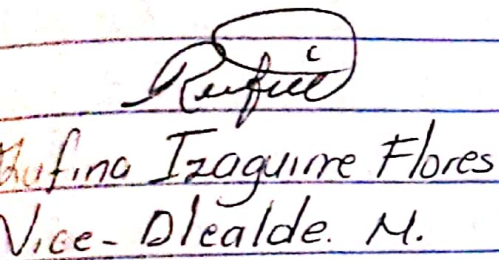 Rufina
Rufina Izaguirre Flores
Vice-Alcalde. M.